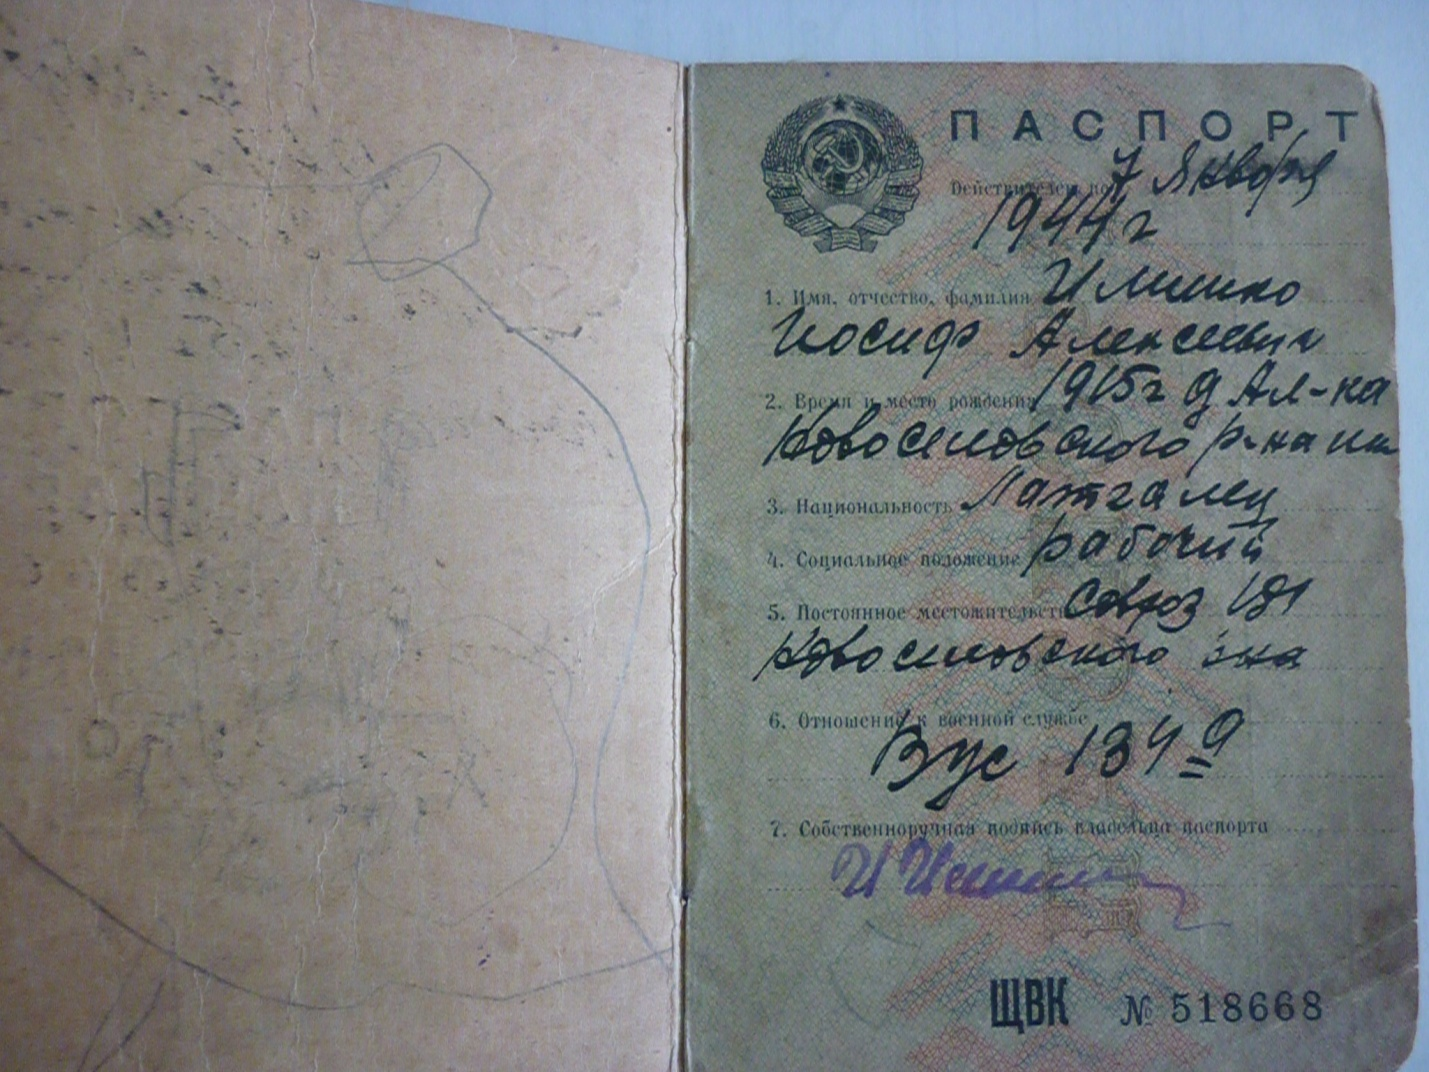 ПАСПОРТ
Действителен по 7 Января
1944 г
1. Имя, отчество, фамилия
Иосиф Алексеевич
2. Время и место рождения 1915 г д Ал-ка
Новоселовского р-на
3. Национальность Латгалец
4. Социальное положение рабочий
5. Постоянное местожительство
Новоселовского
6. Отношение к военной службе
Вус 134
7. Собственноручная подпись владельца паспорта
ЩВК № 518668